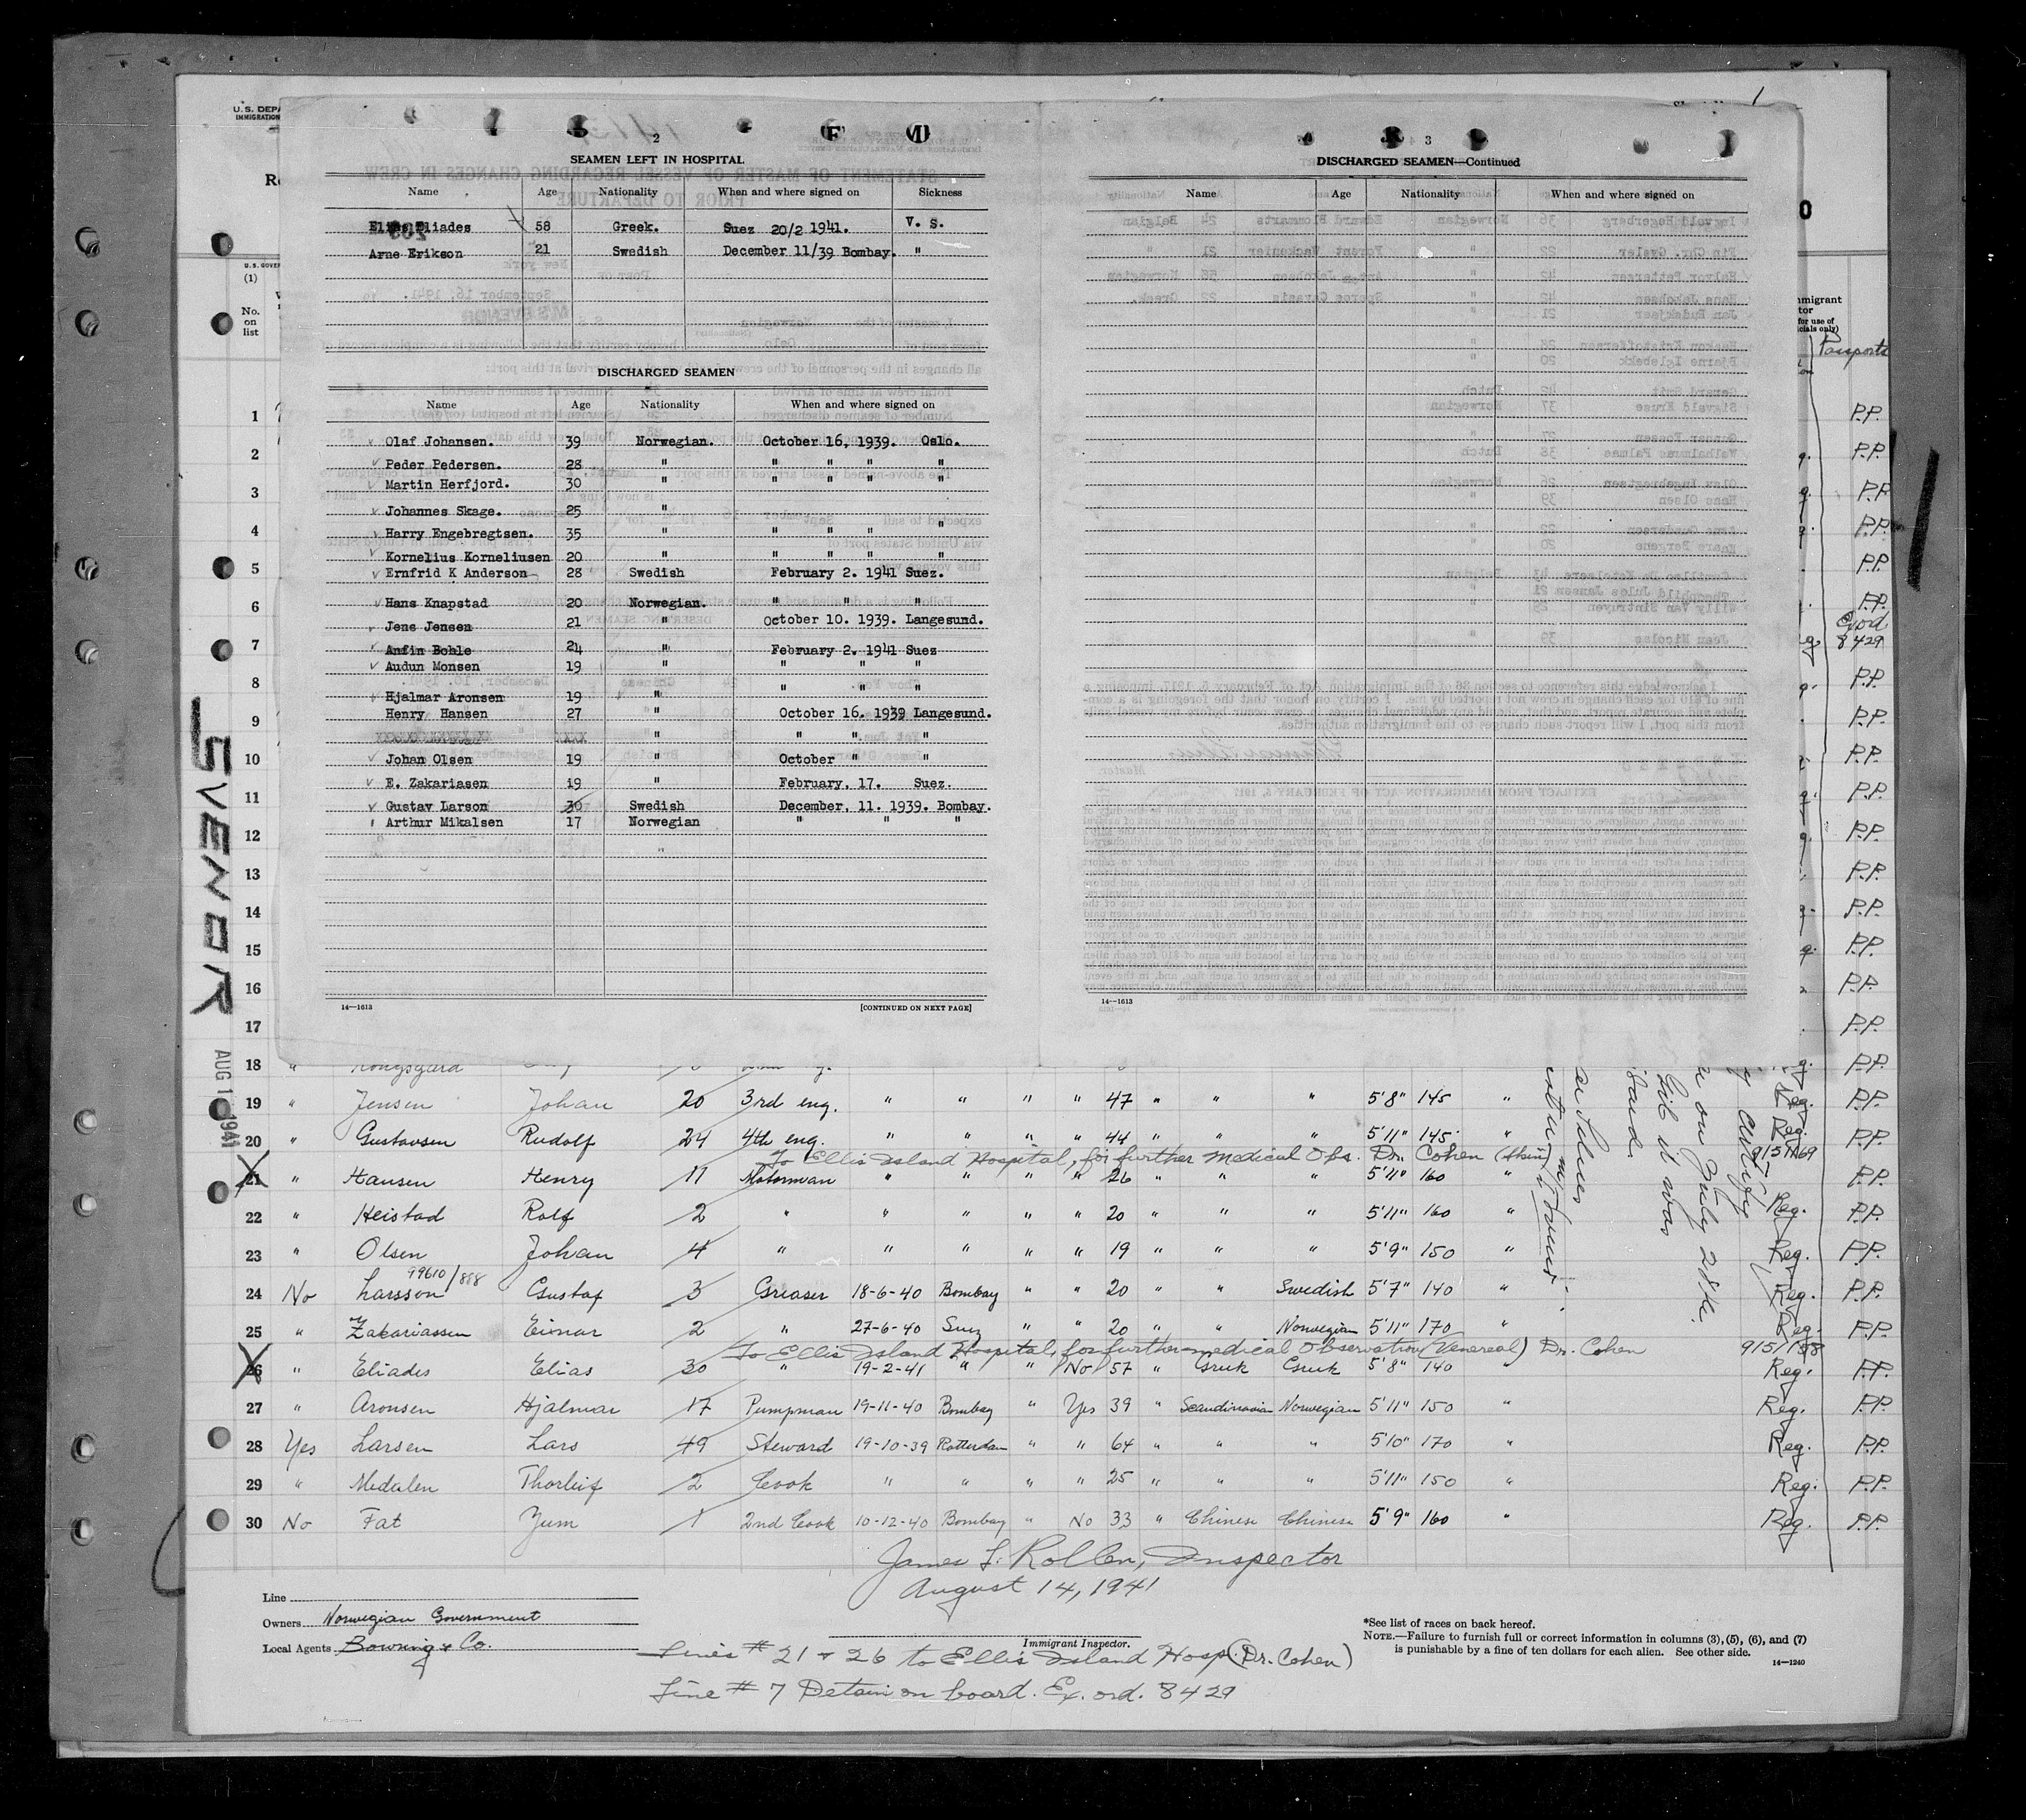 U. S. DEPA
IMMIGRATION
2
SEAMEN LEFT IN HOSPITAL
Name Age Nationality When and where signed on Sickness
Elias Eliades 58 Greek. Suez 20/2 1941. V. S.
Arne Erikson 21 Swedish December 11/39 Bombay. "
DISCHARGED SEAMEN
Name Age Nationality When and where signed on
Olaf Johansen. 39 Norwegian. October 16, 1939. Oslo.
Peder Pedersen. 28 " " " " "
Martin Herfjord. 30 " " " " "
Johannes Skage. 25 "
Harry Engebregtsen. 35 " " " " "
Kornelius Korneliusen 20 " " " " "
Ernfrid K Anderson 28 Swedish February 2. 1941 Suez.
Hans Knapstad 20 Norwegian. " " "
Jens Jensen 21 " October 10. 1939. Langesund.
Anfin Bohle 24 " February 2. 1941 Suez
Audun Monsen 19 " " " "
Hjalmar Aronsen 19 " " " "
Henry Hansen 27 " October 16. 1939 Langesund.
" " "
Johan Olsen 19 " October " "
E. Zakariasen 19 " February. 17. Suez.
Gustav Larson 30 Swedish December. 11. 1939. Bombay.
Arthur Mikalsen 17 Norwegian " " "
"
14—1613 [CONTINUED ON NEXT PAGE]
3
DISCHARGED SEAMEN—Continued
Name Age Nationality When and where signed on
14—1613
(1)
No.
on
list
1
2
3
4
5
6
7
8
9
10
11
12
13
14
15
16
17
SVENOR
AUG 1 1941
Passports
P.P.
P.P.
P.P.
P.P.
P.P.
P.P.
Ex ord
8429
P.P.
P.P.
P.P.
P.P.
P.P.
P.P.
P.P.
P.P.
P.P.
P.P.
18 " Kongsgaard P.P.
19 " Jensen Johan 20 3rd eng. " " " " 47 " " " 5'8" 145 " Reg. P.P.
20 " Gustavsen Rudolf 24 4th eng. " " " " 44 " " " 5'11" 145 " Reg. P.P.
To Ellis Island Hospital, for further medical Obs. Dr. Cohen (Skin)
21 " Hansen Henry 11 Motorman " " " " 26 " " " 5'11" 160 " P.P.
22 " Heistad Rolf 2 " " " " " 20 " " " 5'11" 160 " Reg. P.P.
23 " Olsen Johan 4 " " " " " 19 " " " 5'9" 150 " Reg. P.P.
99610/888
24 No Larsson Gustaf 3 Greaser 18-6-40 Bombay " " 20 " " Swedish 5'7" 140 " Reg. P.P.
25 " Zakariassen Einar 2 " 27-6-40 Suez " " 20 " " Norwegian 5'11" 170 " Reg. P.P.
To Ellis Island Hospital, for further medical observation (Venereal) Dr. Cohen
26 " Eliades Elias 30 " 19-2-41 " " No 57 " Greek Greek 5'8" 140 " Reg. P.P.
27 " Aronsen Hjalmar 17 Pumpman 19-11-40 Bombay " Yes 39 " Scandinavian Norwegian 5'11" 150 " Reg. P.P.
28 Yes Larsen Lars 49 Steward 19-10-39 Rotterdam " " 64 " " " 5'10" 170 " Reg. P.P.
29 " Medalen Thorleif 2 Cook " " " " 25 " " " 5'11" 150 " Reg. P.P.
30 No Fat Yum 1 2nd Cook 10-12-40 Bombay " No 33 " Chinese Chinese 5'9" 160 " Reg. P.P.
James J. Rollen, Inspector
August 14, 1941
Immigrant Inspector.
Line
Owners Norwegian Government
Local Agents Bowring & Co.
Lines # 21 & 26 to Ellis Island Hosp (Dr. Cohen)
Line # 7 Detain on board. Ex. ord. 8429
*See list of races on back hereof.
NOTE.—Failure to furnish full or correct information in columns (3), (5), (6), and (7)
is punishable by a fine of ten dollars for each alien. See other side.
14—1240